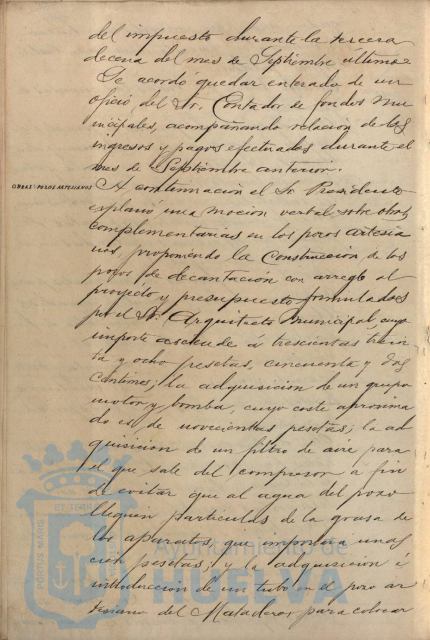 del impuesto durante la tercera
decena del mes de Septiembre último.
Se acordó quedar enterado de un
oficio del Sr. Contador de fondos mu
nicipales, acompañando relación de los
ingresos y pagos efectuados durante el
mes de Septiembre anterior.
OBRAS: POZOS ARTESIANOS
A continuación el Sr. Presidente
explanó una moción verbal sobre obras
complementarias en los pozos artesia
nos, proponiendo la construcción de los
pozos de decantación con arreglo al
proyecto y presupuesto formulados
por el Sr. Arquitecto Municipal, cuyo
importe asciende á trescientas trein
ta y ocho pesetas, cincuenta y dos
céntimos; la adquisicion de un grupo
motor y bomba, cuyo coste aproxima
do es de novecientas pesetas; la ad
quisicion de un filtro de aire para
el que sale del compresor á fin
de evitar que al agua del pozo
lleguen partículas de la grasa de
los aparatos, que importa unas
cien pesetas; y la adquisicion é
introducción de un tubo en el pozo ar
tesiano del Matadero, para colocar
Ayuntamiento de
HUELVA
PORTUS MARIS
ET TERRAE